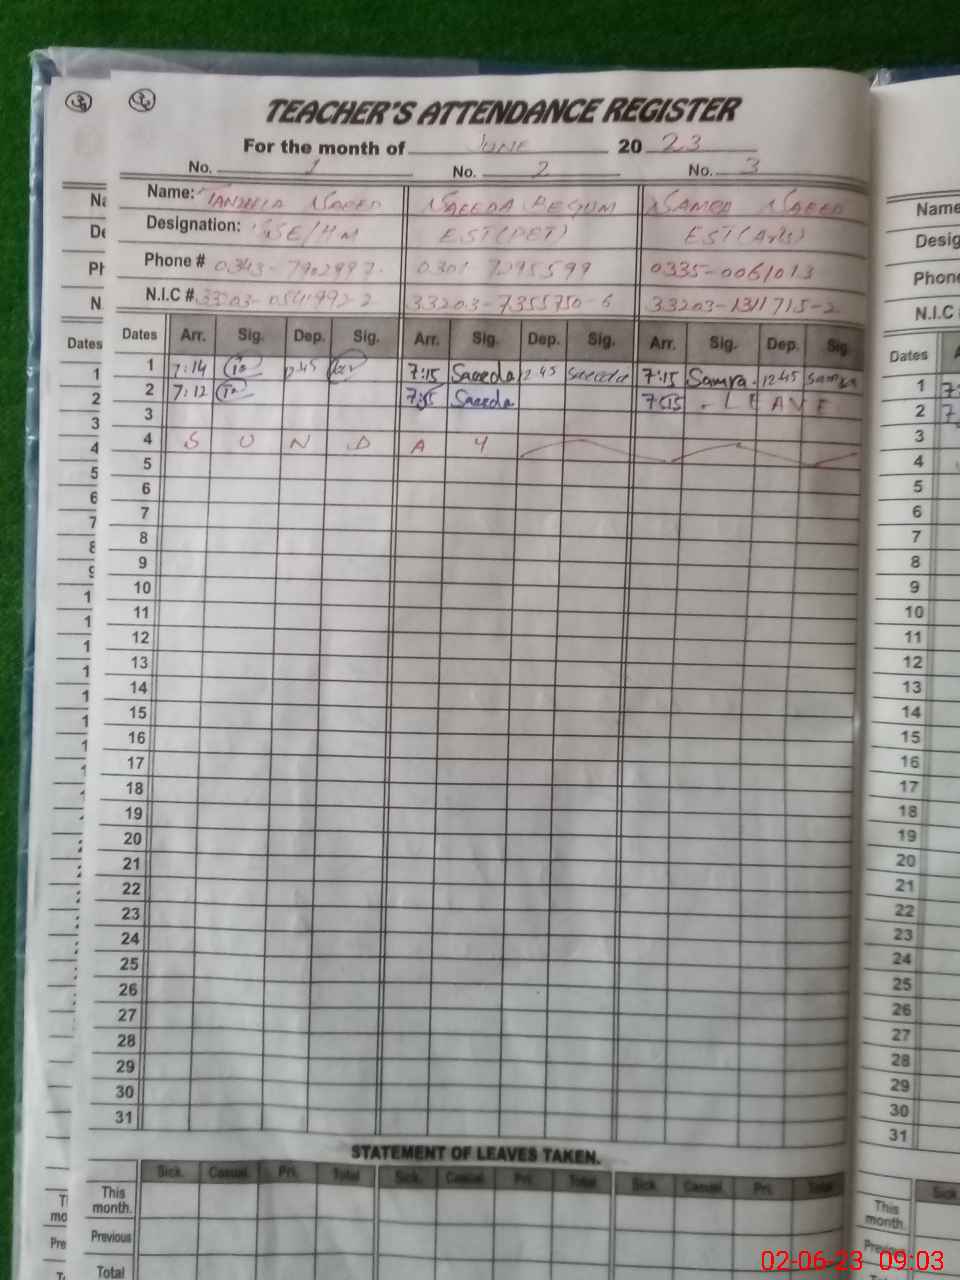 TEACHER'S ATTENDANCE REGISTER
For the month of JUNE 20 23
No. 1 No. 2 No. 3
Name: TANZEELA SAEED SAEEDA BEGUM SAMRA SAEED
Designation: SSE/HM EST(PET) EST(Arts)
Phone # 0301 7295599 0335-0061013
N.I.C # 33203-0541992-2 33203-7355750-6 33203-1311715-2
Dates Arr. Sig. Dep. Sig. Arr. Sig. Dep. Sig. Arr. Sig. Dep. Sig.
1 7:14 12:45 7:15 Saeeda 12 45 Saeeda 7:15 Samra 12 45 Samra
2 7:12 7:15 Saeeda 7:15 LEAVE
3
4 S U N D A Y
5
6
7
8
9
10
11
12
13
14
15
16
17
18
19
20
21
22
23
24
25
26
27
28
29
30
31
STATEMENT OF LEAVES TAKEN.
Sick. Casual. Pri. Total Sick. Casual. Pri. Total Sick. Casual. Pri. Total
This month.
Previous
Total
Name
Desig
Phone
N.I.C
Dates
1
2
3
4
5
6
7
8
9
10
11
12
13
14
15
16
17
18
19
20
21
22
23
24
25
26
27
28
29
30
31
Sick
This month.
Previous
Total
02-06-23 09:03